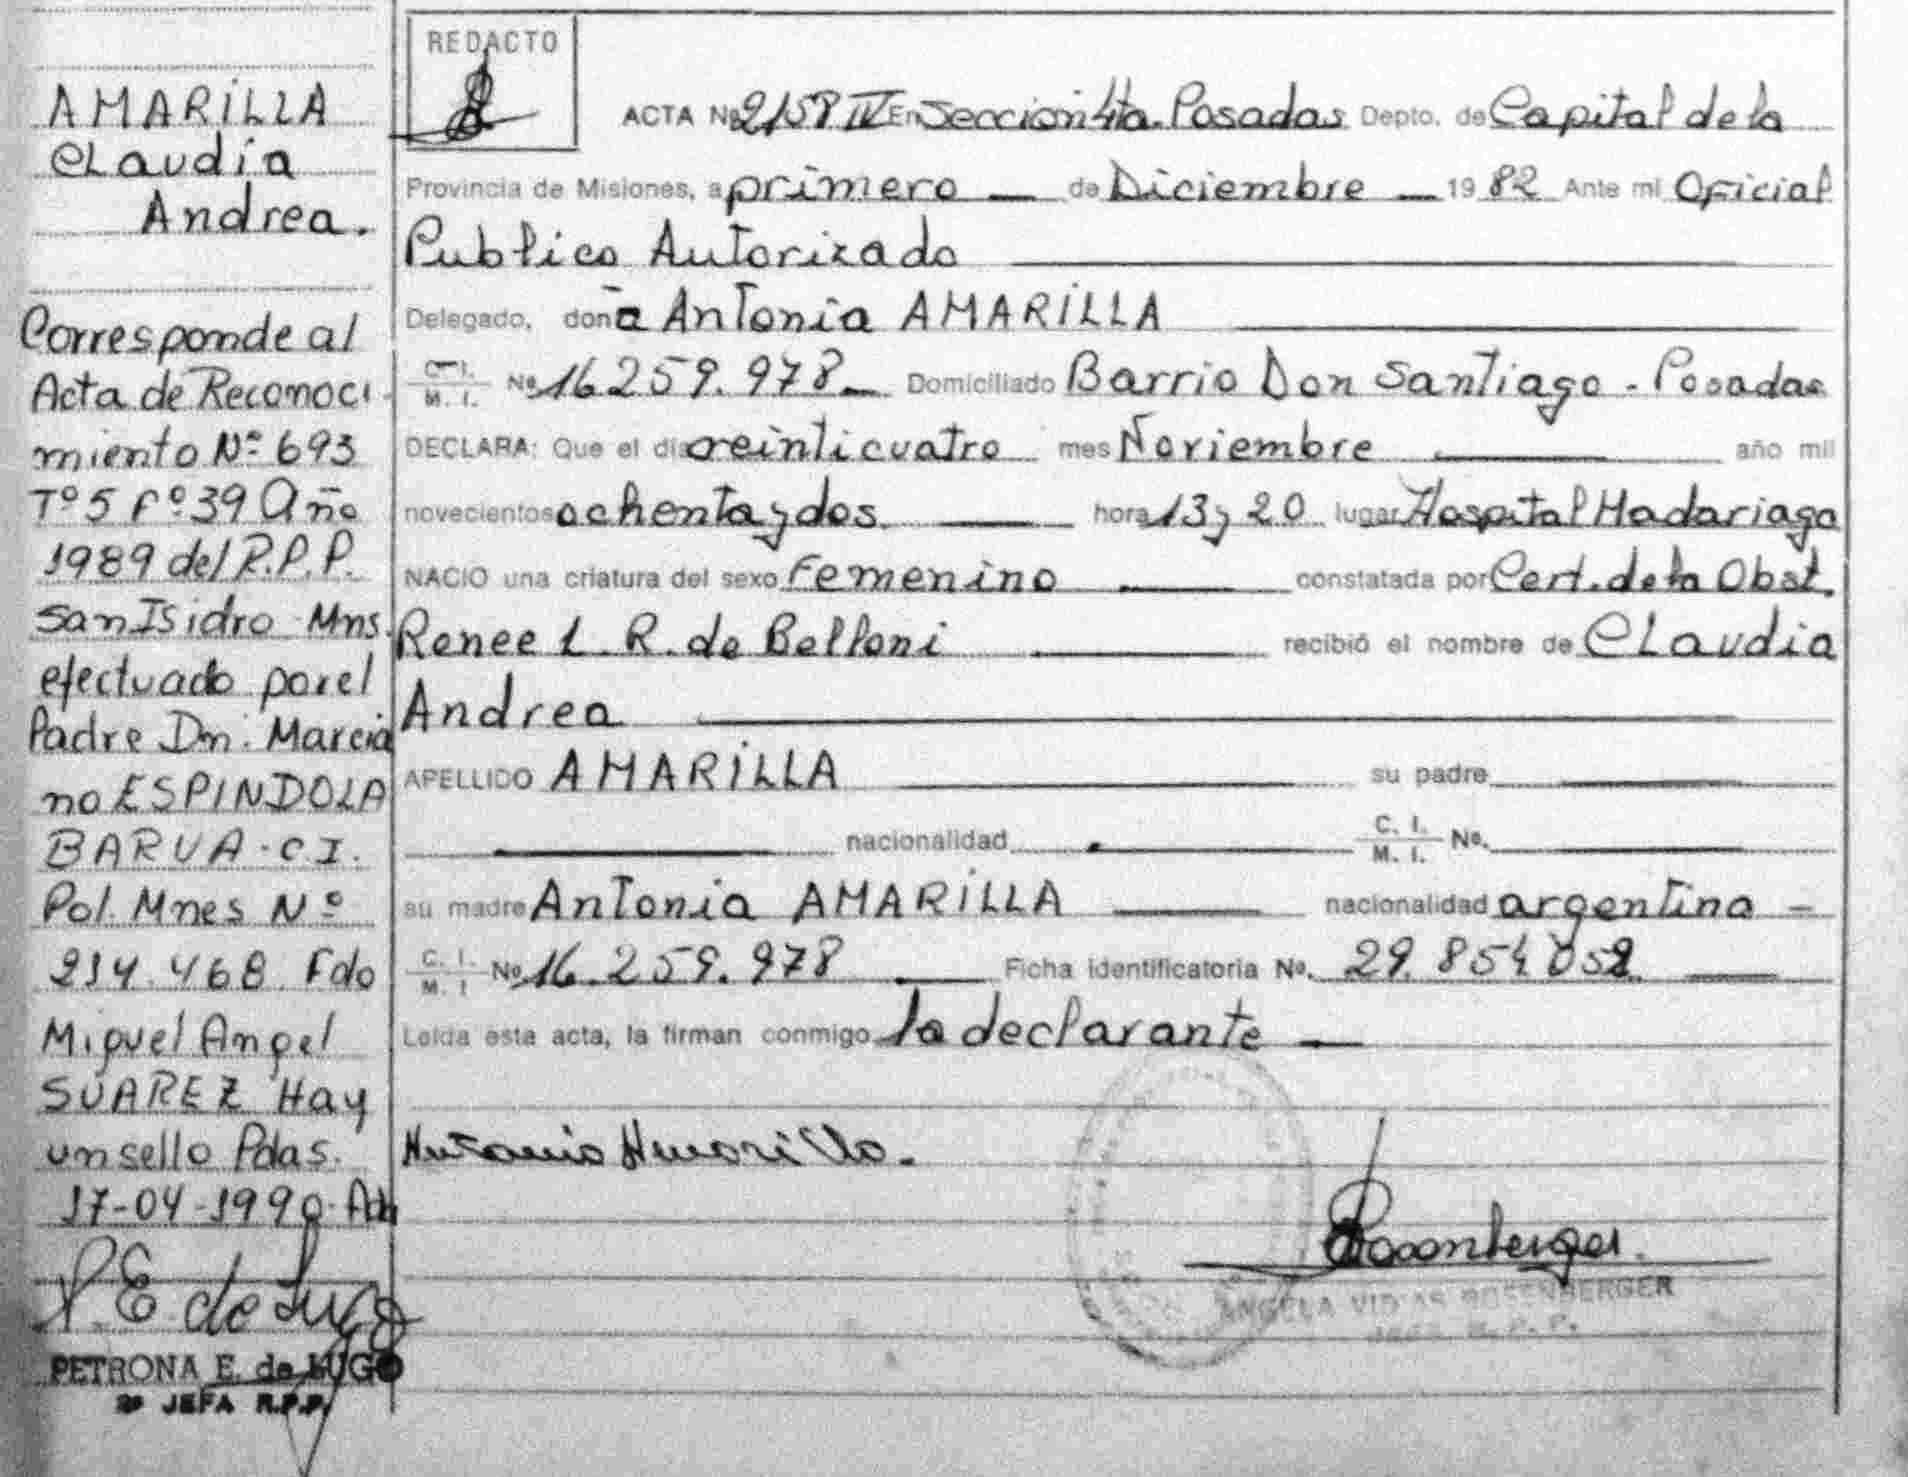 AMARILLA
CLaudia
Andrea.
Corresponde al
Acta de Reconoci
miento Nº 693
Tº 5 Fº 39 Año
1989 del R.P.P.
San Isidro Mns.
efectuado por el
Padre Dn. Marcia
no ESPINDOLA
BARUA. C I.
Pol. Mnes Nº
214.468. Fdo
Miguel Angel
SUAREZ Hay
un sello Pdas.
17-04-1990.
P. E. de Lugo
PETRONA E. de LUGO
2º JEFA R.P.P.
REDACTO
ACTA Nº 2158 IV En Seccion 4ta. Posadas Depto. de Capital de la
Provincia de Misiones, a primero de Diciembre 1982 Ante mi Oficial
Publico Autorizado
Delegado, doña Antonia AMARILLA
C. I. M. I. Nº 16.259.978 Domiciliado Barrio Don Santiago - Posadas
DECLARA: Que el día veinticuatro mes Noviembre año mil
novecientos ochenta y dos hora 13 y 20 lugar Hospital Madariaga
NACIO una criatura del sexo Femenino constatada por Cert. de la Obst.
Renee L. R. de Belloni recibió el nombre de CLaudia
Andrea
APELLIDO AMARILLA su padre
nacionalidad C. I. M. I. Nº.
su madre Antonia AMARILLA nacionalidad argentina -
C. I. M. I Nº 16.259.978 Ficha identificatoria Nº. 29.854.052
Leída esta acta, la firman conmigo la declarante
Antonia Amarilla.
Rosenberger.
ANGELA VIDAS ROSENBERGER
JEFA R. P. P.